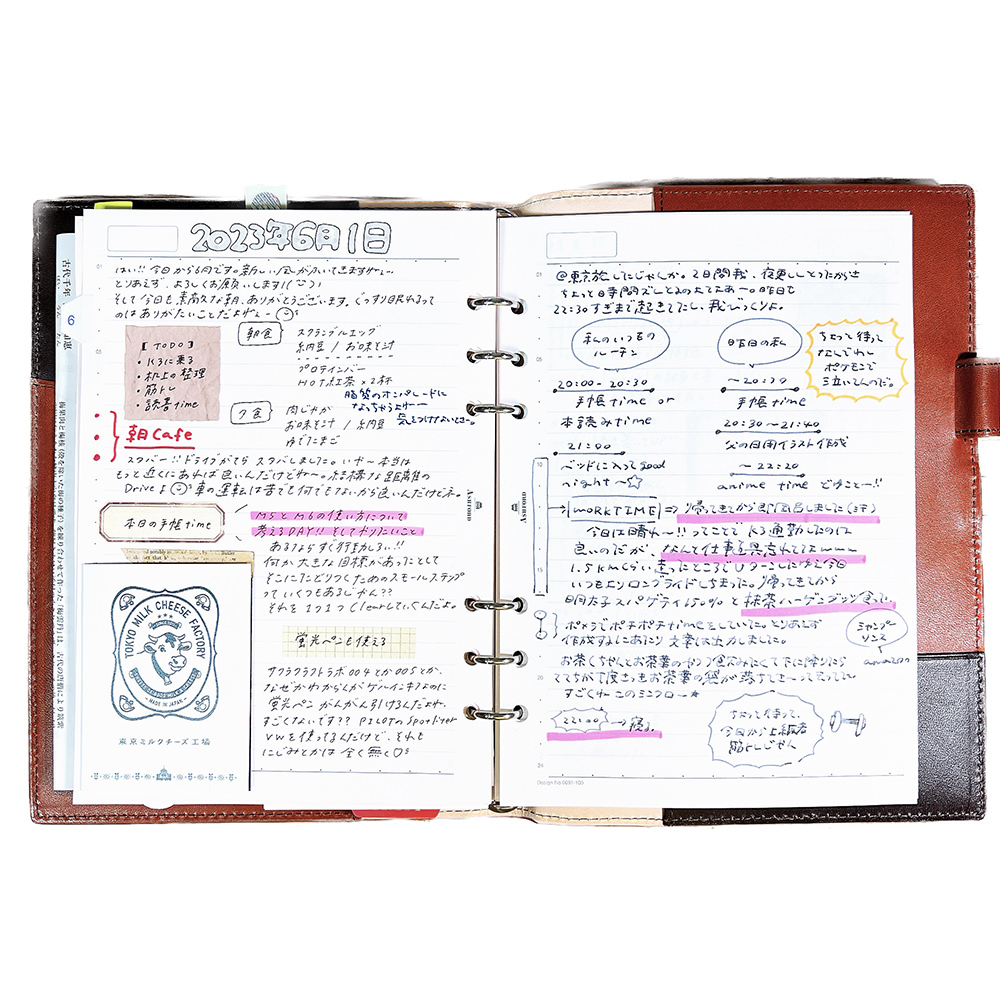 2023年6月1日
はい!! 今日から6月です。新しい風がふいてきますねぇ〜
とりあえず、よろしくお願いします!
そして今日も素敵な朝、ありがとうございます。ぐっすり眠れるって
のはありがたいことだよねぇ〜
【TODO】
・K3に乗る
・机上の整理
・筋トレ
・読書time
朝食
スクランブルエッグ
納豆 / お味そ汁
プロテインバー
HOT紅茶×2杯
脂質のオンパレードに
なっちゃうよねー
気をつけないとネー。
夕食
肉じゃが
お味そ汁 / 納豆
ゆでたまご
朝Cafe
スタバー!! ドライブがてら スタバしました。いや〜本当は
もっと近くにあれば良いんだけどね〜。結構な距離の
Driveよ 車の運転は苦でも何でもないから良いんだけどネ。
本日の手帳time
M5とM6の使い方について
考えるDAY!! そしてやりたいこと
あるならすぐ行動しろい!!
何か大きな目標があったとして
そこにたどりつくためのスモールステップ
っていくつもあるじゃん??
それを1つ1つclearしていくんだよ。
蛍光ペンも使える
サクラクラフトラボ004とか005とか、
なぜかわからんがゲルインキなのに
蛍光ペンがんがん引けるんだよね。
すごくないです?? PILOTのSpotliter
VWを使ってるんだけど、それも
にじみとかは全く無く♡
TOKYO MILK CHEESE FACTORY
MADE IN JAPAN
東京ミルクチーズ工場
ASHFORD
6
古代千年
@東京旅したじゃんか。2日間我、夜更ししとったから
ちょっと時間ズレとんのよてよあー。昨日も
22:30すぎまで起きてたし、我びっくりよ。
私のいつもの
ルーチン
昨日の私
ちょっと待って
なんでわし
ポケモンで
3泣いてんのだ。
20:00-20:30
手帳time or
本読みtime
21:00
ベッドに入ってgood
night〜☆
〜20:30
手帳time
20:30〜21:40
父の日用イラスト作成
〜22:20
anime time どゆこと〜!!
WORKTIME ⇒ 帰ってきてから即風呂しました
今日は晴れ〜!!ってことで K3通勤したのは
良いのだが、なんと仕事
1.5kmくらい走ったところでUターンしたゆえ今日
いつもよりロングライドしちまった。帰ってきてから
明太子スパゲティ150%と抹茶ハーゲンダッツ食った。
ポメラでポチポチtimeをしていた。とりあえず
作成するにあたり文章は出力しました。
シャンプー
リンス
amazon
お茶ちゃんとお茶葉の
すごくね このミラクル〜☆
22:00 → 寝る。
ちょっと待って、
今日から上級者
筋トレじゃん
Design No 0031-100